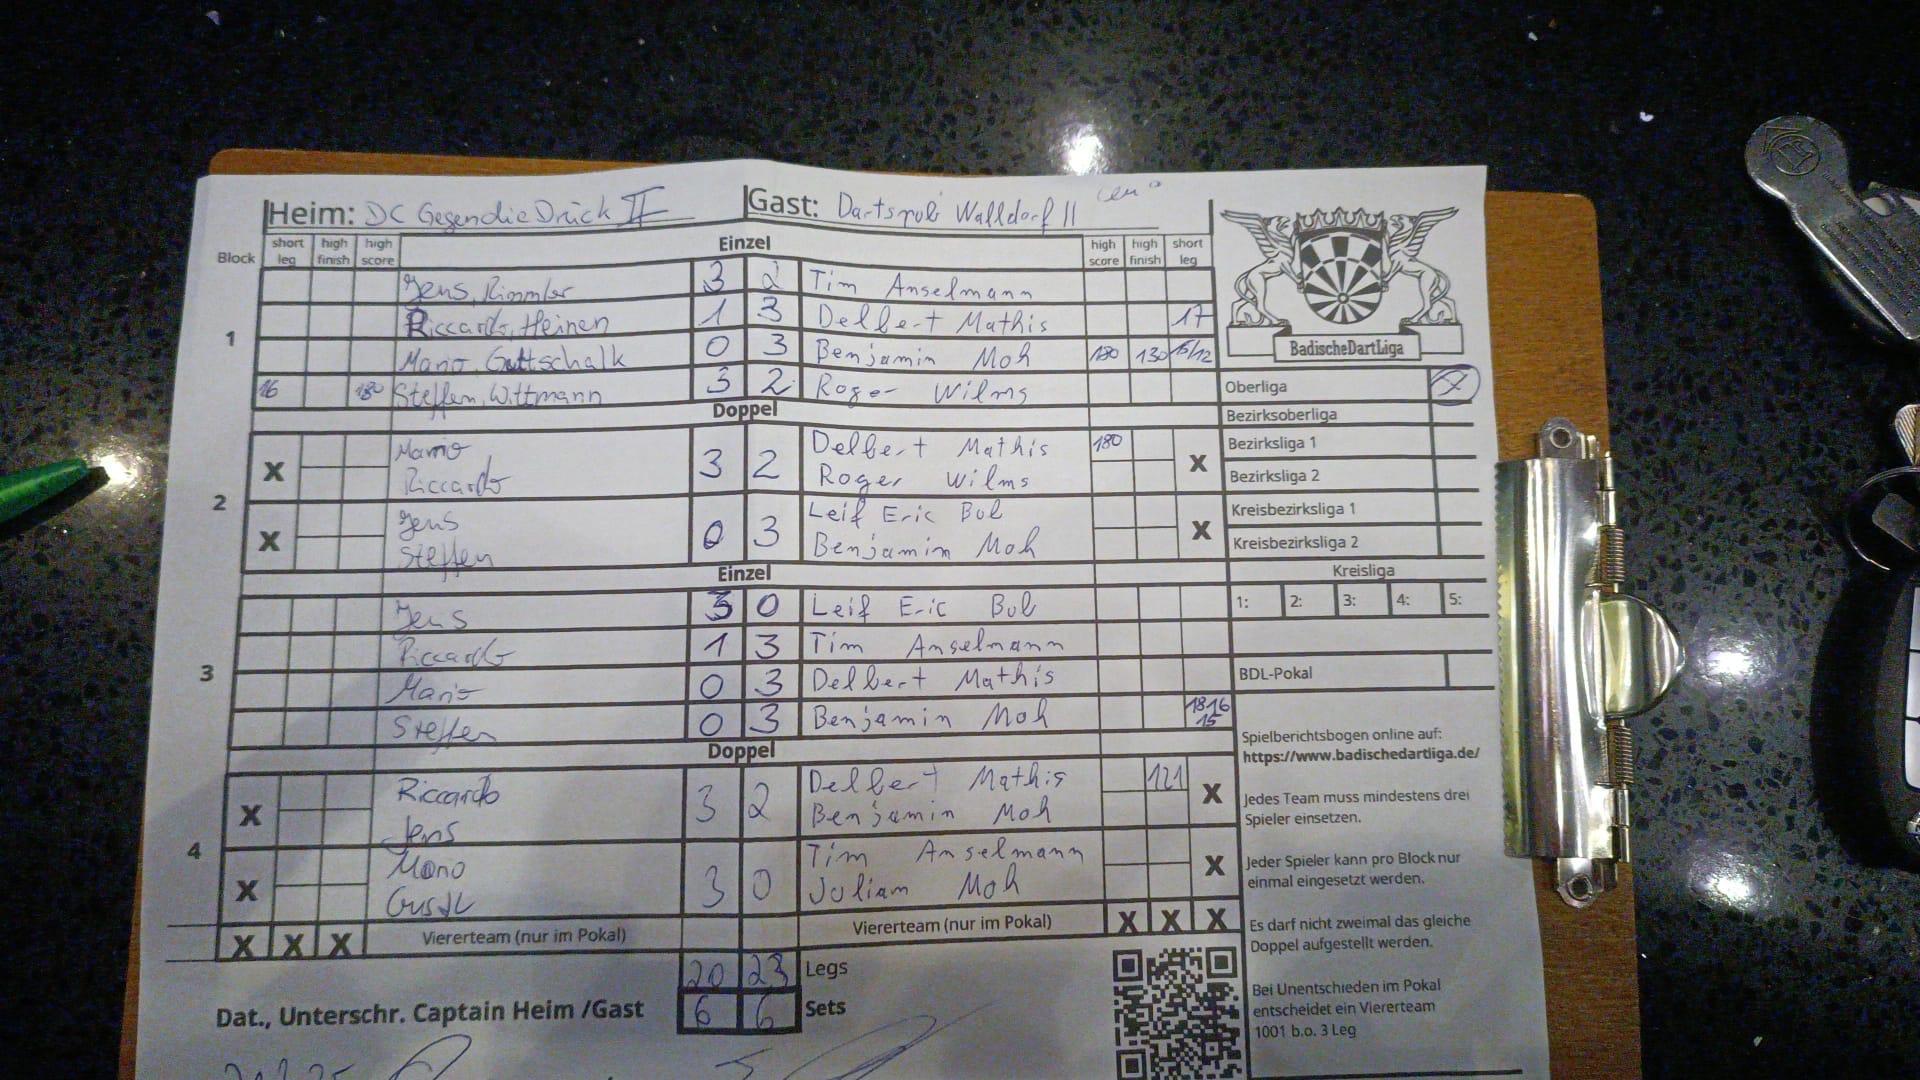 Heim: DC GegendieDrück II Gast: Dartspub Walldorf II
Block short leg high finish high score Einzel high score high finish short leg
1
Jens, Rimmler 3 2 Tim Anselmann
Riccardo, Heinen 1 3 Delbert Mathis 17
Mario, Guttschalk 0 3 Benjamin Moh 180 130 15/12
16 180 Steffen, Wittmann 3 2 Roger Wilms
Doppel
2
X Mario 3 2 Delbert Mathis 180 X
Riccardo Roger Wilms
X Jens 0 3 Leif Eric Bul X
Steffen Benjamin Moh
Einzel
3
Jens 3 0 Leif Eric Bul
Riccardo 1 3 Tim Anselmann
Mario 0 3 Delbert Mathis
Steffen 0 3 Benjamin Moh 18 16 15
Doppel
4
X Riccardo 3 2 Delbert Mathis 121 X
Jens Benjamin Moh
X Mario 3 0 Tim Anselmann X
Julian Moh
X X X Viererteam (nur im Pokal) Viererteam (nur im Pokal) X X X
20 23 Legs
Dat., Unterschr. Captain Heim /Gast 6 6 Sets
BadischeDartLiga
Oberliga X
Bezirksoberliga
Bezirksliga 1
Bezirksliga 2
Kreisbezirksliga 1
Kreisbezirksliga 2
Kreisliga
1: 2: 3: 4: 5:
BDL-Pokal
Spielberichtsbogen online auf:
https://www.badischedartliga.de/
Jedes Team muss mindestens drei
Spieler einsetzen.
Jeder Spieler kann pro Block nur
einmal eingesetzt werden.
Es darf nicht zweimal das gleiche
Doppel aufgestellt werden.
Bei Unentschieden im Pokal
entscheidet ein Viererteam
1001 b.o. 3 Leg